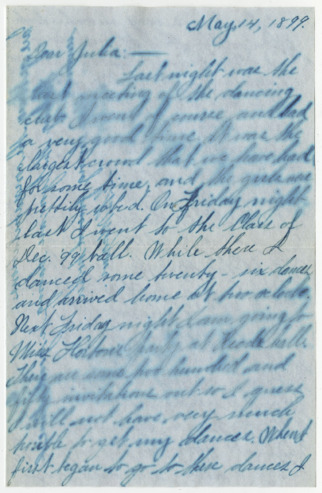 May 14, 1899.
Dear Julia:—
Last night was the
last meeting of the dancing
class I went of course and had
a very good time. It was the
largest crowd that we have had
for some time, and the girls were
prettily
last I went to the Class of
Dec. 99 ball. While there I
danced some twenty-six dances
and arrived home at two o'clock.
Next Friday night I am going to
Miss party at hall.
There are some two hundred and
fifty invitations out so I guess
I will not have very much
trouble to get my dances. When I
first began to go to these dances I